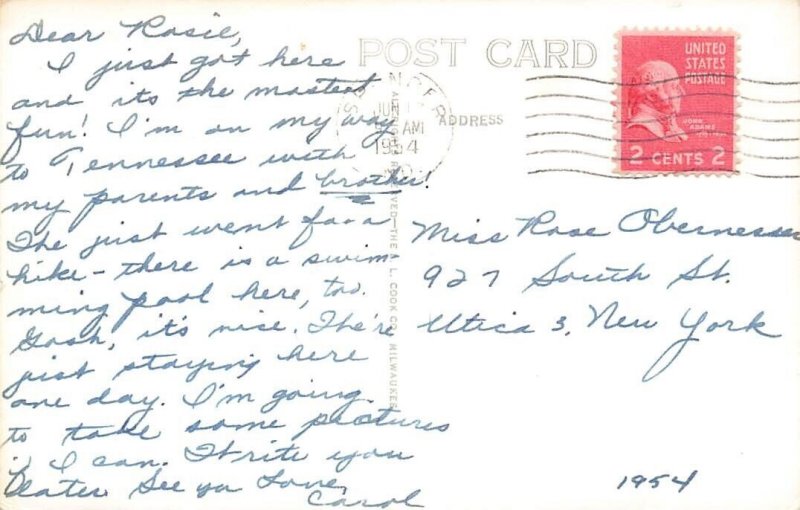 Dear Rosie,
I just got here
and its the mostest
fun! I'm on my way
to Tennessee with
my parents and brother!
The just went for a
hike - there is a swim-
ming pool here, too.
Gosh, it's nice. The're
just staying here
one day. I'm going
to take some pictures
if I can. I'll write you
later. See ya Love,
Carol
POST CARD
ADDRESS
SPENCER
JUL
AM
1954
ALL RIGHTS RESERVED—THE L. L. COOK CO., MILWAUKEE
UNITED
STATES
POSTAGE
JOHN
ADAMS
2 CENTS 2
Miss Rose Obernesser
927 South St.
Utica 3, New York
1954